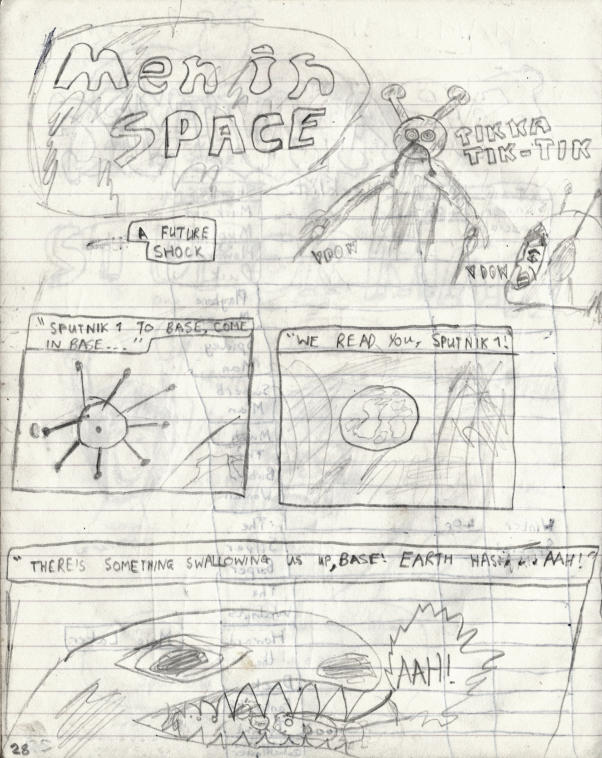 Men in
SPACE
TIKKA
TIK-TIK
A FUTURE
SHOCK
VDOW
VDOW
"SPUTNIK 1 TO BASE, COME
IN BASE..."
"WE READ YOU, SPUTNIK 1!
"THERE'S SOMETHING SWALLOWING US UP, BASE! EARTH HAS... AAH!"
AAH!
28